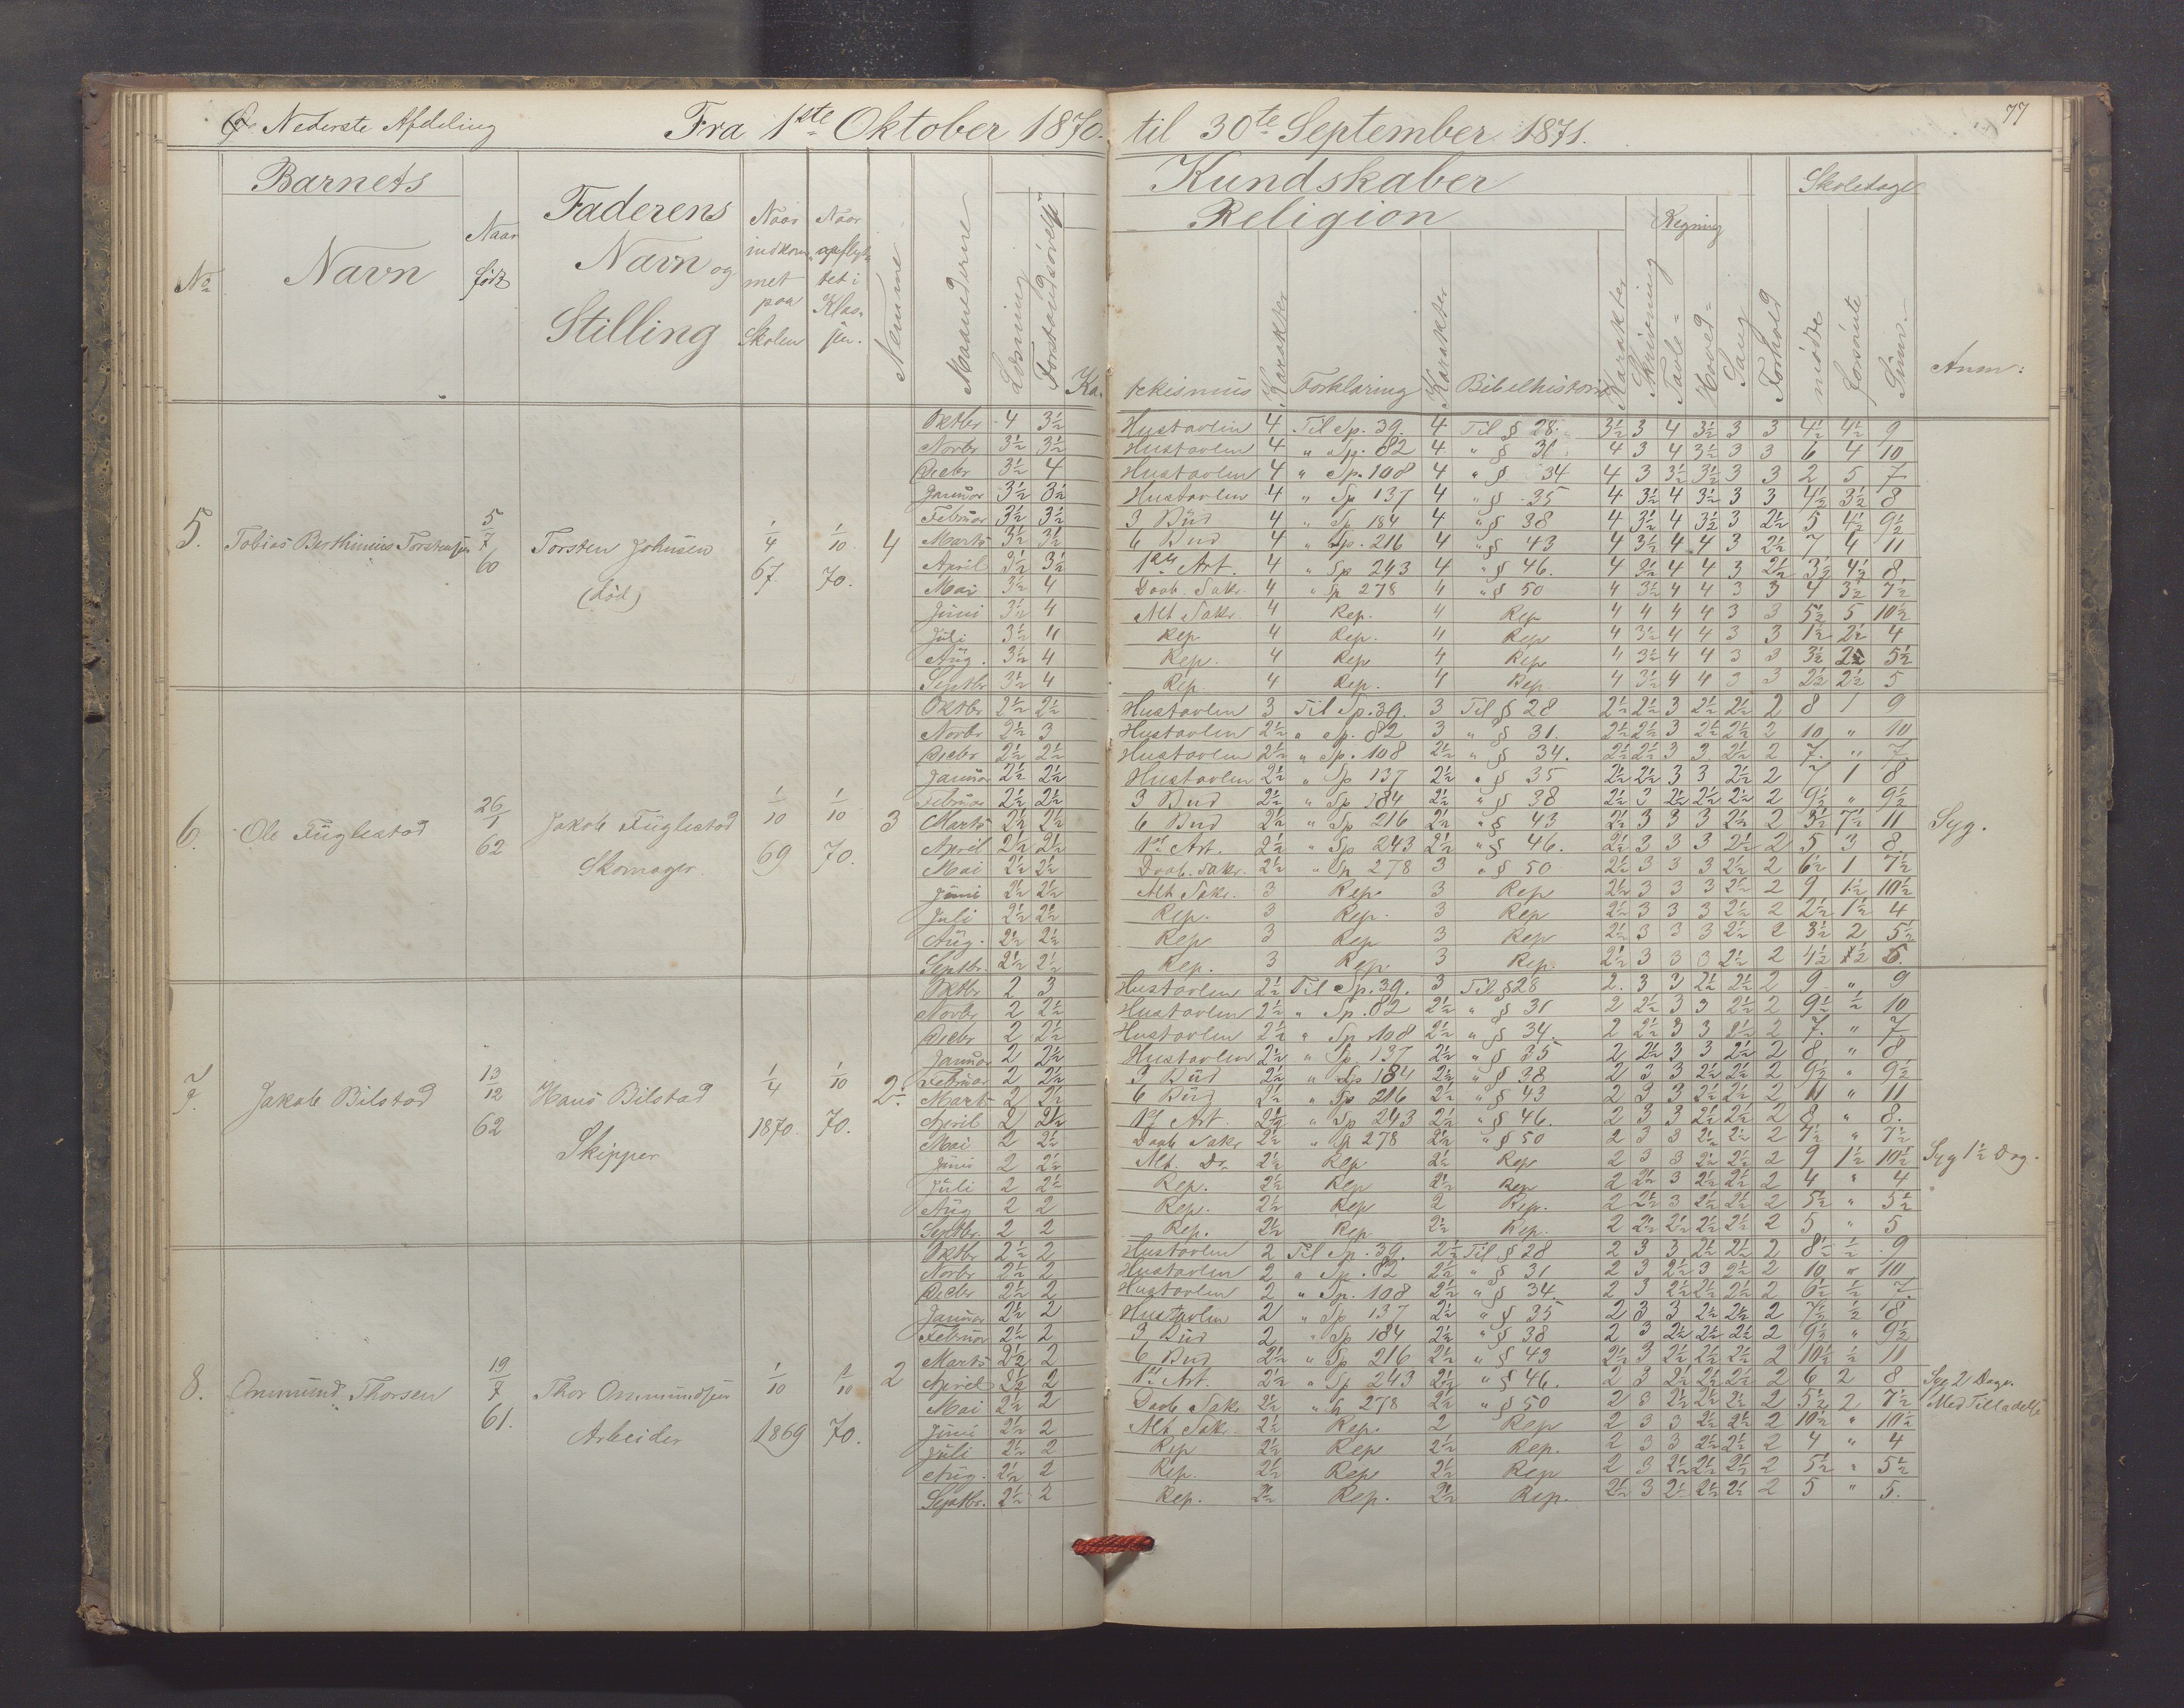 Nederste Afdeling Fra 1ste Oktober 1870. til 30te September 1871. 77
Barnets Faderens Kundskaber Skoledage
Religion Regning
No Navn Naar født Navn og Stilling Naar indkommet paa Skolen Naar opflyttet i Klassen. Nemme Maanederne Læsning Forstandsøvelse Ka- tekismus Karakter Forklaring Karakter Bibelhistorie Karakter Skrivning Tavle= Hoved= Sang Forhold mødte forsømte Sum. Anm:
5. Tobias Berthinius Torstensen 5/7 60 Torsten Johnsen (død) 1/4 67. 1/10 70. 4
Oktbr 4 3½ Hustavlen 4 Til Sp. 39. 4 Til § 28. 3½ 3 4 3½ 3 3 4½ 4½ 9
Novbr 3½ 3½ Hustavlen 4 " Sp. 82 4 " § 31. 4 3 4 3½ 3 3 6 4 10
Decbr 3½ 4 Hustavlen 4 " Sp. 108 4 " § 34 4 3 3½ 3½ 3 3 2 5 7
Januar 3½ 3½ Hustavlen 4 " Sp 137 4 " § 35 4 3½ 4 3½ 3 3 4½ 3½ 8
Februar 3½ 3½ 3 Bud 4 " Sp 184 4 " § 38 4 3½ 4 3½ 3 2½ 5 4½ 9½
Marts 3½ 3½ 6 Bud 4 " Sp. 216 4 " § 43 4 3½ 4 4 3 2½ 7 4 11
April 3½ 3½ 1ste Art. 4 " Sp 243 4 " § 46. 4 3½ 4 4 3 2½ 3½ 4½ 8
Mai 3½ 4 Daab. Sakr. 4 " Sp 278 4 " § 50 4 3½ 4 4 3 3 4 3½ 7½
Juni 3½ 4 Alt Sakr. 4 Rep. 4 Rep 4 4 4 4 3 3 5½ 5 10½
Juli 3½ 4 Rep 4 Rep. 4 Rep 4 3½ 4 4 3 3 1½ 2½ 4
Aug. 3½ 4 Rep. 4 Rep 4 Rep 4 3½ 4 4 3 3 3½ 2 5½
Septbr 3½ 4 Rep. 4 Rep. 4 Rep 4 3½ 4 4 3 3 2½ 2½ 5
6. Ole Fuglestad 26/1 62 Jakob Fuglestad Skomager. 1/10 69 1/10 70. 3
Oktbr 2½ 2½ Hustavlen 3 Til Sp. 39. 3 Til § 28 2½ 2½ 3 2½ 2½ 2 8 1 9
Novbr 2½ 3 Hustavlen 2½ " Sp. 82 3 " § 31. 2½ 2½ 3 2½ 2½ 2 10 " 10
Decbr 2½ 2½ Hustavlen 2½ " Sp. 108 2½ " § 34. 2½ 2½ 3 3 2½ 2 7. " 7.
Januar 2½ 2½ Hustavlen 2½ " Sp 137 2½ " § 35 2½ 2½ 3 3 2½ 2 7 1 8
Februar 2½ 2½ 3 Bud 2½ " Sp 184 2½ " § 38 2½ 3 2½ 2½ 2½ 2 9½ " 9½
Marts 2½ 2½ 6 Bud 2½ " Sp 216 2½ " § 43 2½ 3 3 3 2½ 2 3½ 7½ 11 Syg.
April 2½ 2½ 1ste Art. 2½ " Sp 243 2½ " § 46. 2½ 3 3 3 2½ 2 5 3 8
Mai 2½ 2½ Daab. Sakr. 2½ " Sp 278 3 " § 50 2½ 3 3 3 2½ 2 6½ 1 7½
Juni 2½ 2½ Alt Sakr. 3 Rep. 3 Rep 2½ 3 3 3 2½ 2 9 1½ 10½
Juli 2½ 2½ Rep. 3 Rep. 3 Rep 2½ 3 3 3 2½ 2 2½ 1½ 4
Aug. 2½ 2½ Rep 3 Rep 3 Rep 2½ 3 3 3 2½ 2 3½ 2 5½
Septbr. 2½ 2½ Rep. 3 Rep. 3 Rep. 2½ 3 3 3 2½ 2 4½ ½ 5.
7. Jakob Bilstad 13/12 62 Hans Bilstad Skipper 1/4 1870. 1/10 70. 2÷
Oktbr 2 3 Hustavlen 2½ Til Sp. 39. 3 Til § 28 2. 3 3 2½ 2½ 2 9 " 9
Novbr 2 2½ Hustavlen 2½ " Sp. 82 2½ " § 31 2 2½ 3 3 2½ 2 9½ ½ 10
Decbr 2 2½ Hustavlen 2½ " Sp. 108 2½ " § 34. 2 2½ 3 3 2½ 2 7. " 7
Januar 2 2½ Hustavlen 2½ " Sp. 137 2½ " § 35 2 2½ 3 3 2½ 2 8 " 8
Februar 2 2½ 3 Bud 2½ " Sp 184 2½ " § 38 2 3 3 2½ 2½ 2 9½ " 9½
Marts 2 2½ 6 Bud 2½ " Sp 216 2½ " § 43 2 3 3 2½ 2½ 2 11 " 11
April 2 2½ 1ste Art. 2½ " Sp 243 2½ " § 46. 2 3 3 2½ 2½ 2 8 " 8.
Mai 2 2½ Daab Sakr 2½ " Sp 278 2½ " § 50 2 3 3 2½ 2½ 2 7½ " 7½
Juni 2 2½ Alt. Do 2½ Rep 2½ Rep 2 3 3 2½ 2½ 2 9 1½ 10½ Syg 1½ Dag.
Juli 2 2½ Rep. 2½ Rep 2½ Rep 2 2½ 3 2½ 2½ 2 4 " 4
Aug 2 2 Rep. 2½ Rep 2 Rep. 2 2½ 3 2½ 2½ 2 5½ " 5½
Septbr. 2 2 Rep. 2½ Rep 2½ Rep. 2 2½ 2½ 2½ 2½ 2 5 " 5
8. Ommund Thorsen 19/7 61. Thor Ommundsen Arbeider 1/10 1869 1/10 70. 2
Oktbr 2½ 2 Hustavlen 2 Til Sp. 39. 2½ Til § 28 2 3 3 2½ 2½ 2 8½ ½ 9
Novbr 2½ 2 Hustavlen 2 " Sp. 82 2½ " § 31 2 3 2½ 3 2½ 2 10 " 10
Decbr 2½ 2 Hustavlen 2 " Sp. 108 2½ " § 34. 2 3 2½ 2½ 2½ 2 6½ ½ 7.
Januar 2½ 2 Hustavlen 2 " Sp 137 2½ " § 35 2 3 3 2½ 2½ 2 7½ ½ 8
Februar 2½ 2 3 Bud 2 " Sp 184 2½ " § 38 2 3 2½ 2½ 2½ 2 9½ " 9½
Marts 2½ 2 6 Bud 2½ " Sp 216 2½ " § 43 2½ 3 2½ 2½ 2½ 2 10½ ½ 11
April 2½ 2 1ste Art. 2½ " Sp 243 2½ " § 46. 2 3 2½ 2½ 2½ 2 6 2 8 Syg 2 Dage.
Mai 2½ 2 Daab Sakr 2½ " Sp 278 2½ " § 50 2 3 2½ 2½ 2½ 2 5½ 2 7½ Med Tilladelse
Juni 2½ 2 Alt. Sakr. 2½ Rep. 2 Rep 2 3 3 2½ 2½ 2 10½ " 10½
Juli 2½ 2 Rep 2½ Rep 2½ Rep. 2 3 3 2½ 2½ 2 4 " 4
Aug. 2½ 2 Rep. 2½ Rep 2½ Rep 2 3 2½ 2½ 2½ 2 5½ " 5½
Septbr. 2½ 2 Rep. 2½ Rep. 2½ Rep. 2½ 3 2½ 2½ 2½ 2 5 " 5.